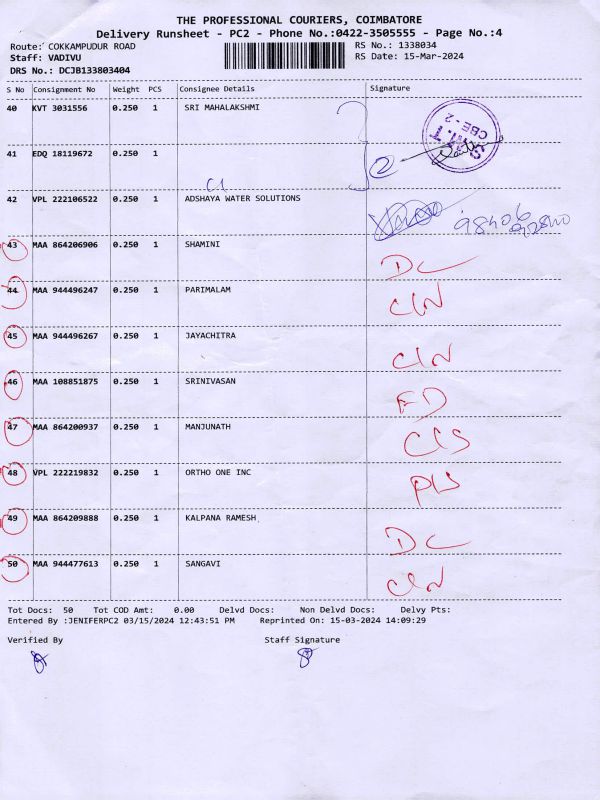 THE PROFESSIONAL COURIERS, COIMBATORE
Delivery Runsheet - PC2 - Phone No.:0422-3505555 - Page No.:4
Route: COKKAMPUDUR ROAD RS No.: 1338034
Staff: VADIVU RS Date: 15-Mar-2024
DRS No.: DCJB133803404
S No Consignment No Weight PCS Consignee Details Signature
40 KVT 3031556 0.250 1 SRI MAHALAKSHMI
CBE - 2
41 EDQ 18119672 0.250 1 2
42 VPL 222106522 0.250 1 ADSHAYA WATER SOLUTIONS
43 MAA 864206906 0.250 1 SHAMINI DC
44 MAA 944496247 0.250 1 PARIMALAM CLN
45 MAA 944496267 0.250 1 JAYACHITRA CLN
46 MAA 108851875 0.250 1 SRINIVASAN
47 MAA 864200937 0.250 1 MANJUNATH
48 VPL 222219832 0.250 1 ORTHO ONE INC
49 MAA 864209888 0.250 1 KALPANA RAMESH DC
50 MAA 944477613 0.250 1 SANGAVI CLN
Tot Docs: 50 Tot COD Amt: 0.00 Delvd Docs: Non Delvd Docs: Delvy Pts:
Entered By :JENIFERPC2 03/15/2024 12:43:51 PM Reprinted On: 15-03-2024 14:09:29
Verified By Staff Signature